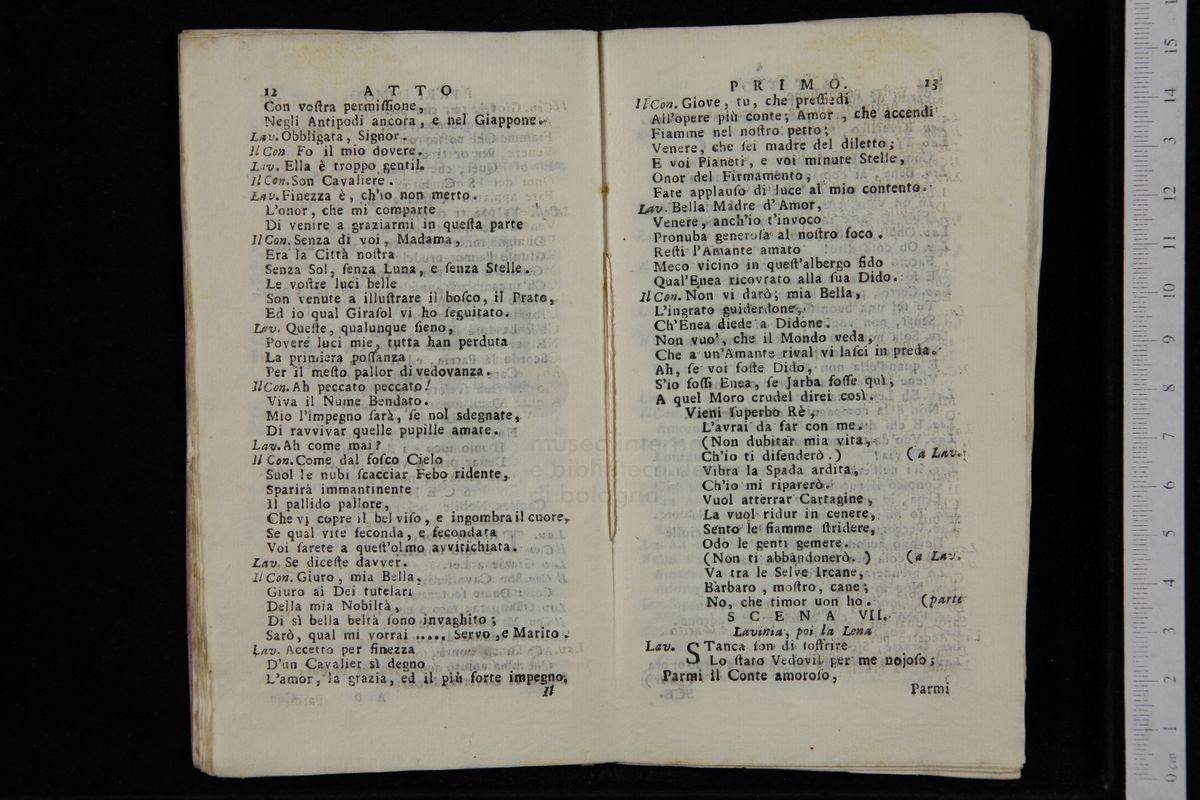 12 ATTO
Con voſtra permiſſione,
Negli Antipodi ancora, e nel Giappone.
Lav. Obbligata, Signor.
Il Con Fo il mio dovere.
Lav. Ella è troppo gentil.
Il Con. Son Cavaliere.
Lav. Finezza è, ch'io non merto.
L'onor, che mi comparte
Di venire a graziarmi in queſta parte
Il Con. Senza di voi, Madama,
Era la Città noſtra
Senza Sol, ſenza Luna, e ſenza Stelle.
Le voſtre luci belle
Son venute a illuſtrare il boſco, il Prato,
Ed io qual Giraſol vi ho ſeguitato.
Lav. Queſte, qualunque ſieno,
Povere luci mie, tutta han perduta
La primiera poſſanza
Per il meſto pallor di vedovanza.
Il Con. Ah peccato peccato!
Viva il Nume Bendato.
Mio l'impegno ſarà, ſe nol sdegnate,
Di ravvivar quelle pupille amate.
Lav. Ah come mai?
Il Con. Come dal foſco Cielo
Suol le nubi ſcacciar Febo ridente,
Sparirà immantinente
Il pallido pallore,
Che vi copre il bel viſo, e ingombra il cuore,
Se qual vite feconda, e fecondata
Voi ſarete a queſt'olmo avvitichiata.
Lav. Se diceſte davver.
Il Con. Giuro, mia Bella.
Giuro ai Dei tutelari
Della mia Nobiltà,
Di sì bella beltà ſono invaghito;
Sarò, qual mi vorrai ..... Servo, e Marito.
Lav. Accetto per finezza
D'un Cavalier sì degno
L'amor, la grazia, ed il più forte impegno.
Il
PRIMO. 13
Il Con. Giove, tu, che preſſiedi
All'opere più conte; Amor, che accendi
Fiamme nel noſtro petto;
Venere, che ſei madre del diletto;
E voi Pianeti, e voi minute Stelle,
Onor del Firmamento,
Fate applauſo di luce al mio contento.
Lav. Bella Madre d'Amor,
Venere, anch'io t'invoco
Pronuba generoſa al noſtro foco.
Reſti l'Amante amato
Meco vicino in queſt'albergo fido
Qual'Enea ricovrato alla ſua Dido.
Il Con. Non vi darò; mia Bella,
L'ingrato guiderdone,
Ch'Enea diede a Didone.
Non vuo', che il Mondo veda,
Che a un'Amante rival vi laſci in preda.
Ah, ſe voi foſte Dido,
S'io foſſi Enea, ſe Jarba foſſe quì,
A quel Moro crudel direi così.
Vieni ſuperbo Rè,
L'avrai da far con me.
(Non dubitar mia vita,
Ch'io ti difenderò.) (a Lav.
Vibra la Spada ardita,
Ch'io mi riparerò.
Vuol atterrar Cartagine,
La vuol ridur in cenere,
Sento le fiamme ſtridere,
Odo le genti gemere.
(Non ti abbandonerò.) (a Lav.
Va tra le Selve Ircane,
Barbaro, moſtro, cane;
No, che timor uon ho. (parte
SCENA VII.
Lavinia, poi la Lena
Lav. STanca ſon di ſoffrire
Lo ſtato Vedovil per me nojoſo;
Parmi il Conte amoroſo,
Parmi